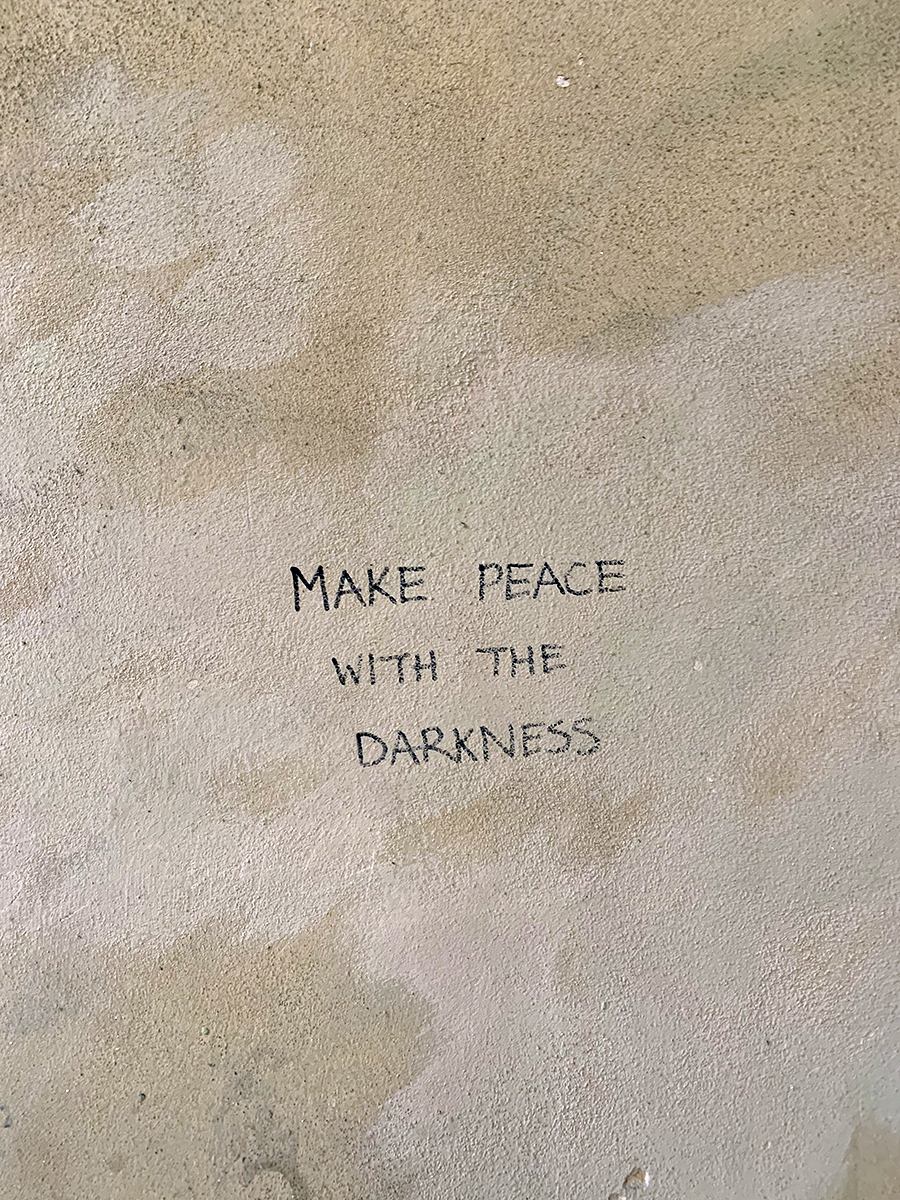 MAKE PEACE
WITH THE
DARKNESS